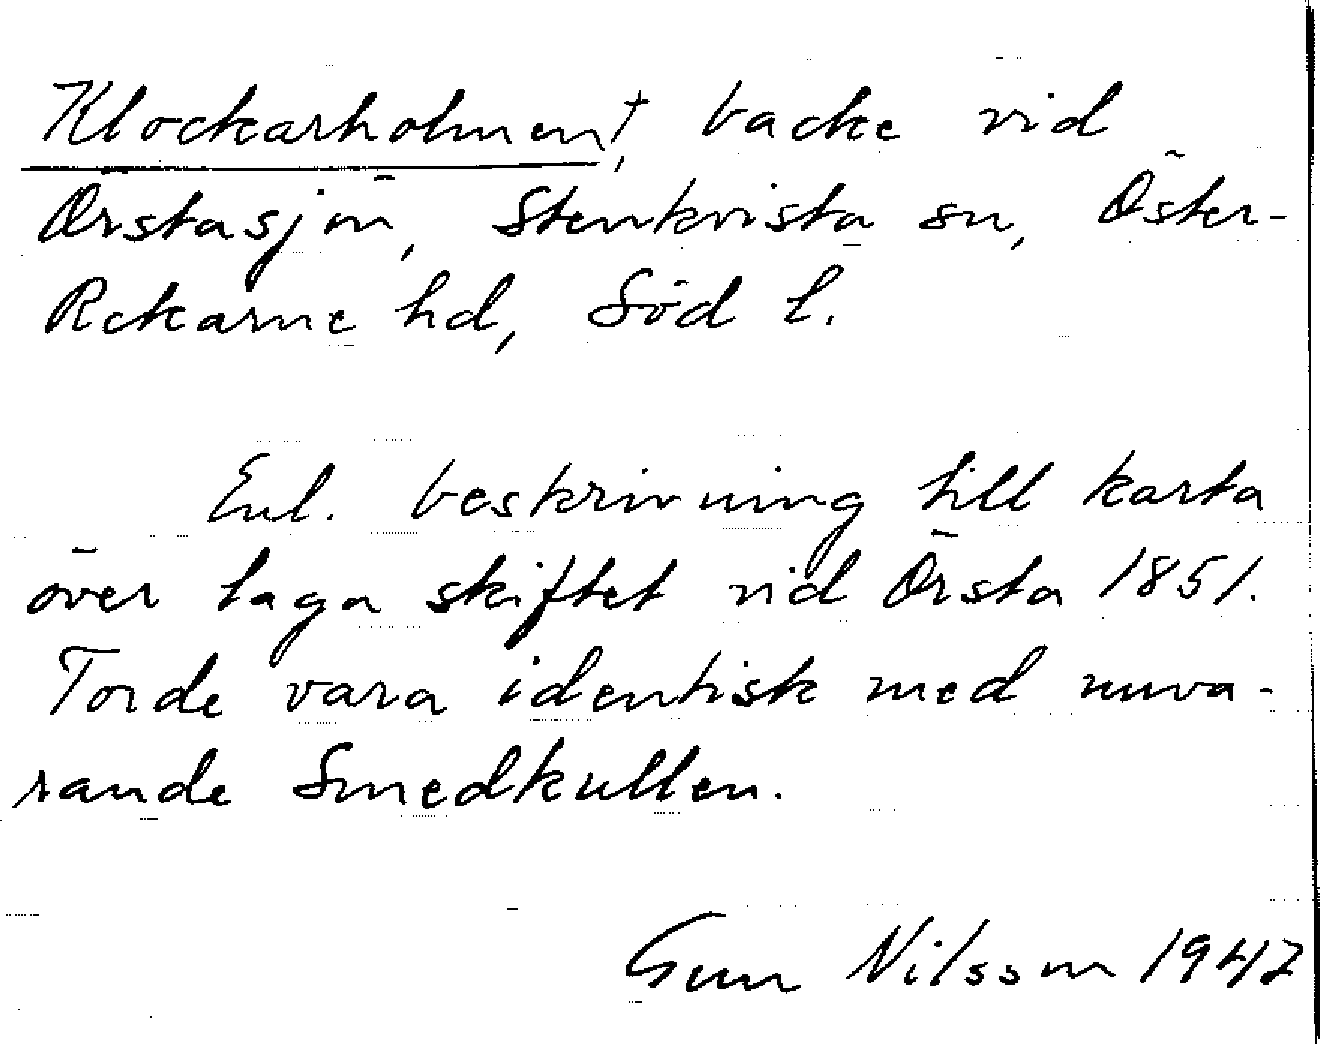 Klockarholmen†, backe vid
Örstasjön, Stenkvista sn, Öster-
Rekarne hd, Söd l.
Enl. beskrivning till karta
över laga skiftet vid Örsta 1851.
Torde vara identisk med nuva-
rande Smedkullen.
Gun Nilsson 1947